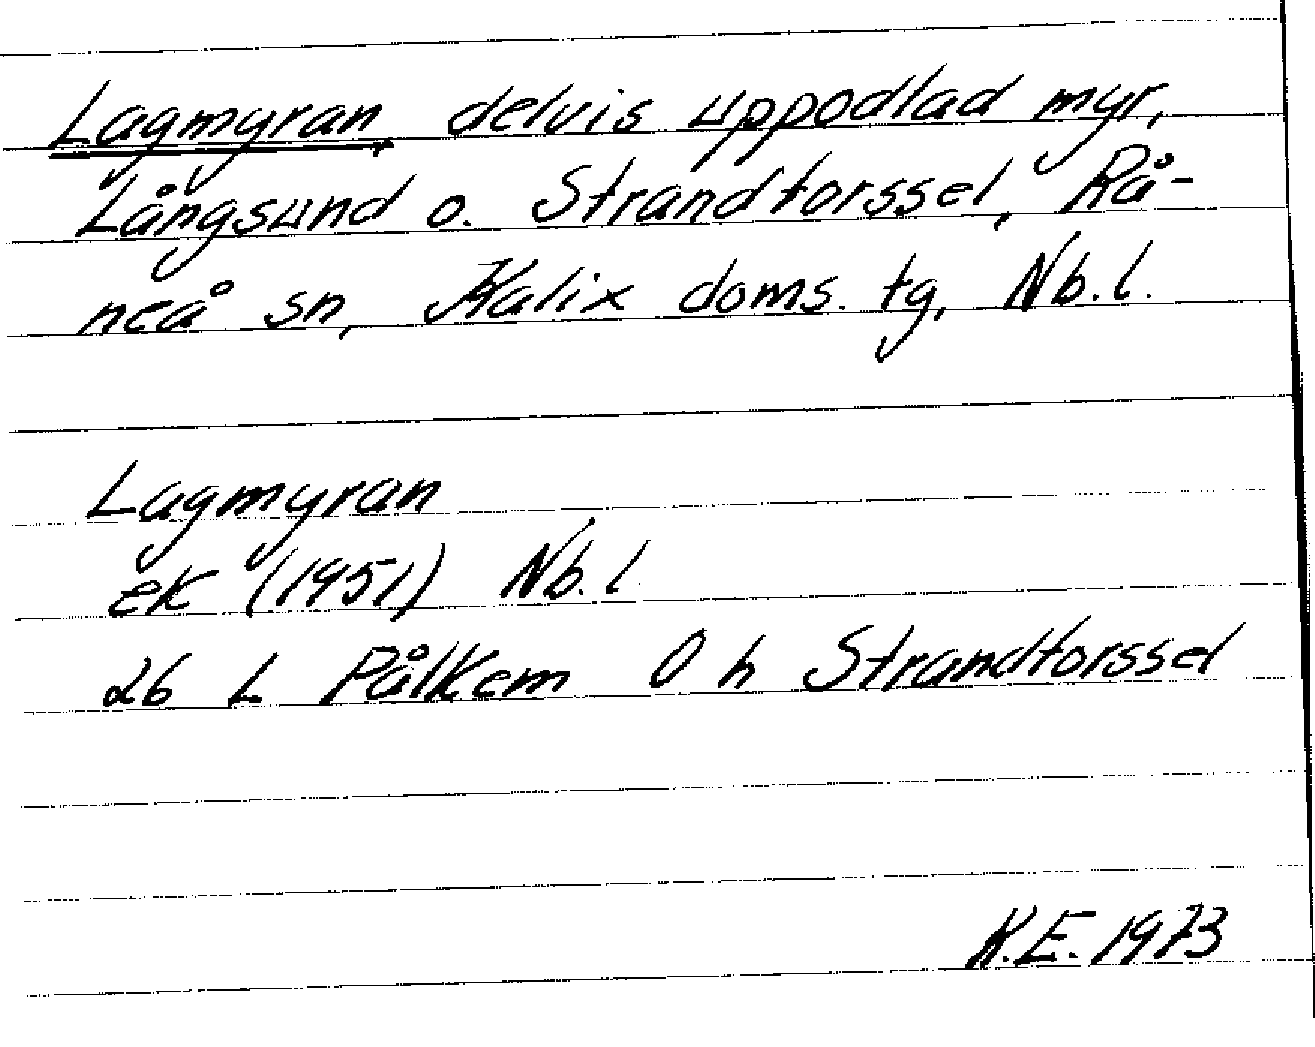 Lagmyran, delvis uppodlad myr,
Långsund o. Strandtorssel, Rå-
neå sn, Kalix doms. tg, Nb.l.
Lagmyran
ek (1951) Nb.l
26 L Pålkem 0 h Strandtorssel
K.E. 1973